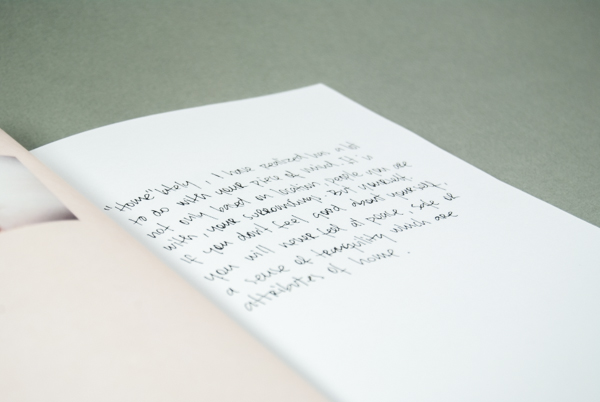 "Home" lately, I have realized has a lot
to do with your piece of mind. It is
not only based on location, people you are
with, your surroundings. But yourself
if you don't feel good about yourself,
you will never feel at peace, safe or
a sense of tranquility which are
attributes of home.